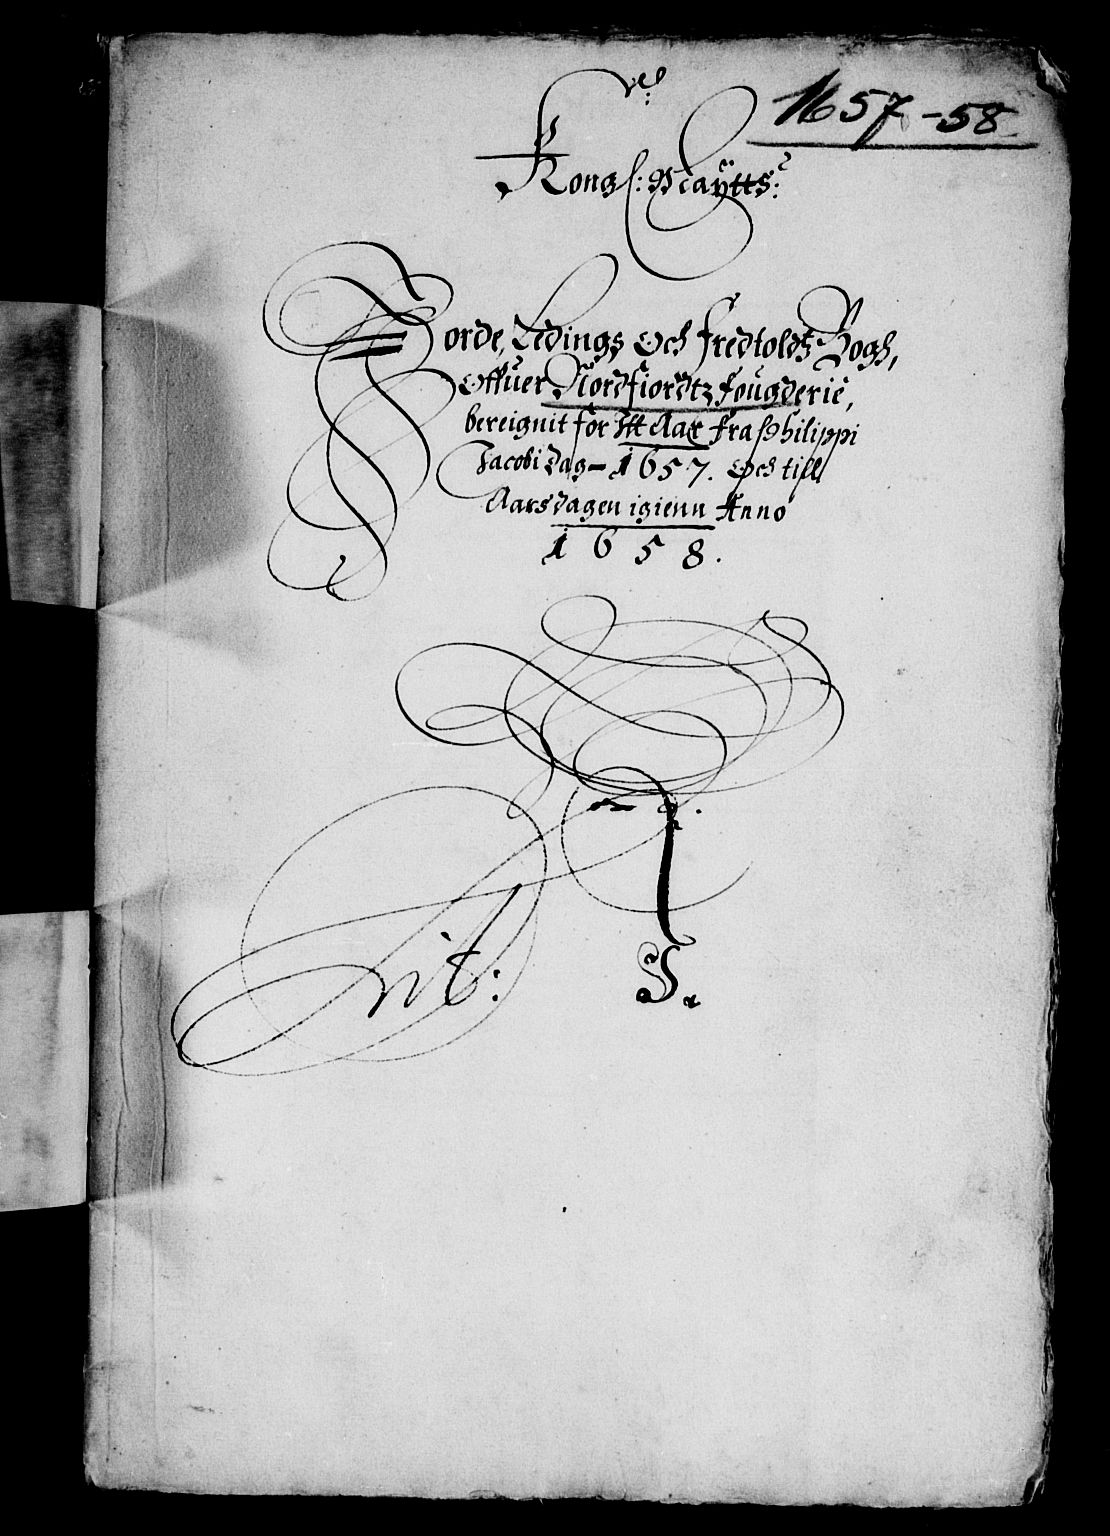 1657-58
Kongl: Maÿtts:
Jorde, Ledings, Och Fredtoldts Bogh,
Offuer Nordfiordtz Fougderie,
bereignit for Itt Aar fra Philippi
Jacobi Dag 1657. Och till
Aarsdagen igienn Anno
1658.
Lit: J.